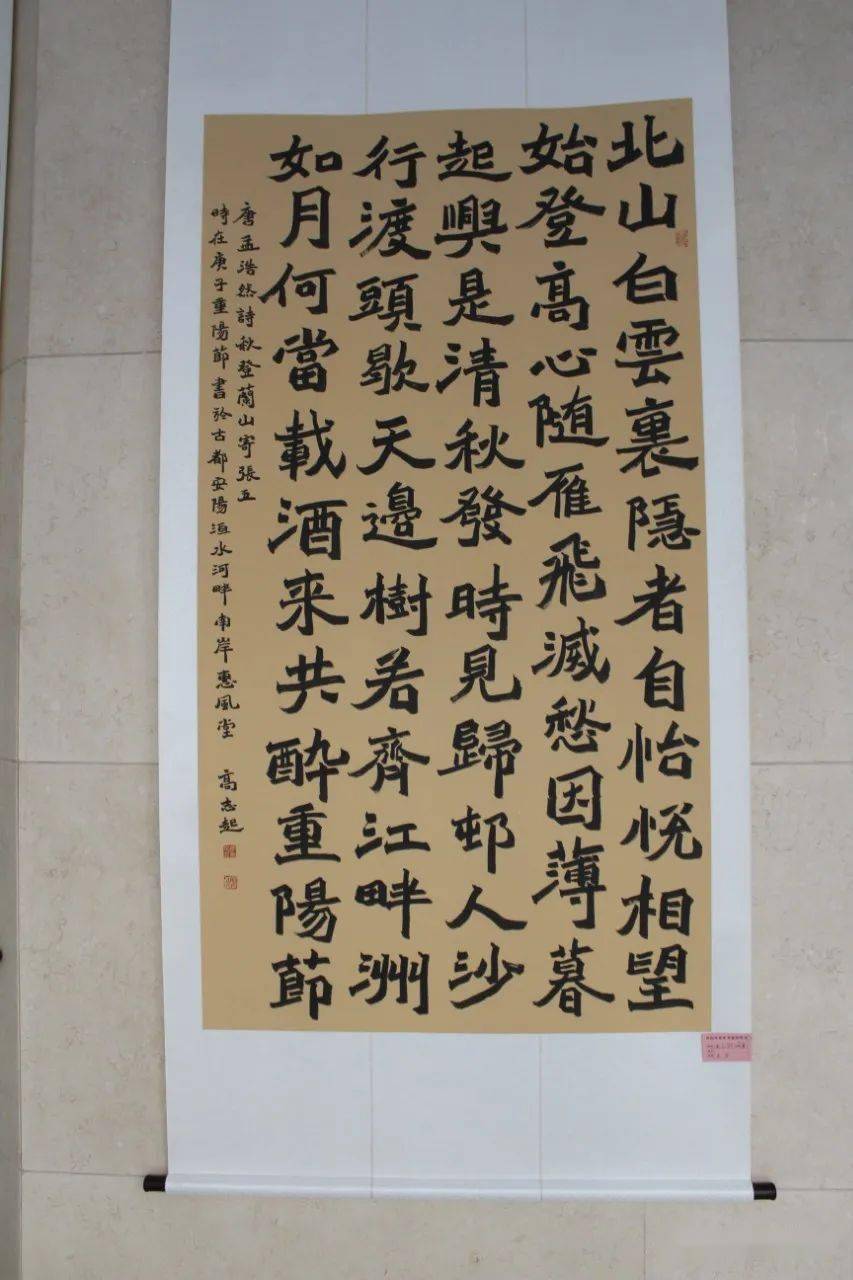 北山白雲裏隱者自怡悅相望
始登高心随雁飛滅愁因薄暮
起興是清秋發時見歸邨人沙
行渡頭歇天邊樹若齊江畔洲
如月何當載酒来共醉重陽節
唐孟浩然詩秋登蘭山寄張五
時在庚子重陽節書於古都安陽洹水河畔南岸惠風堂 高志起